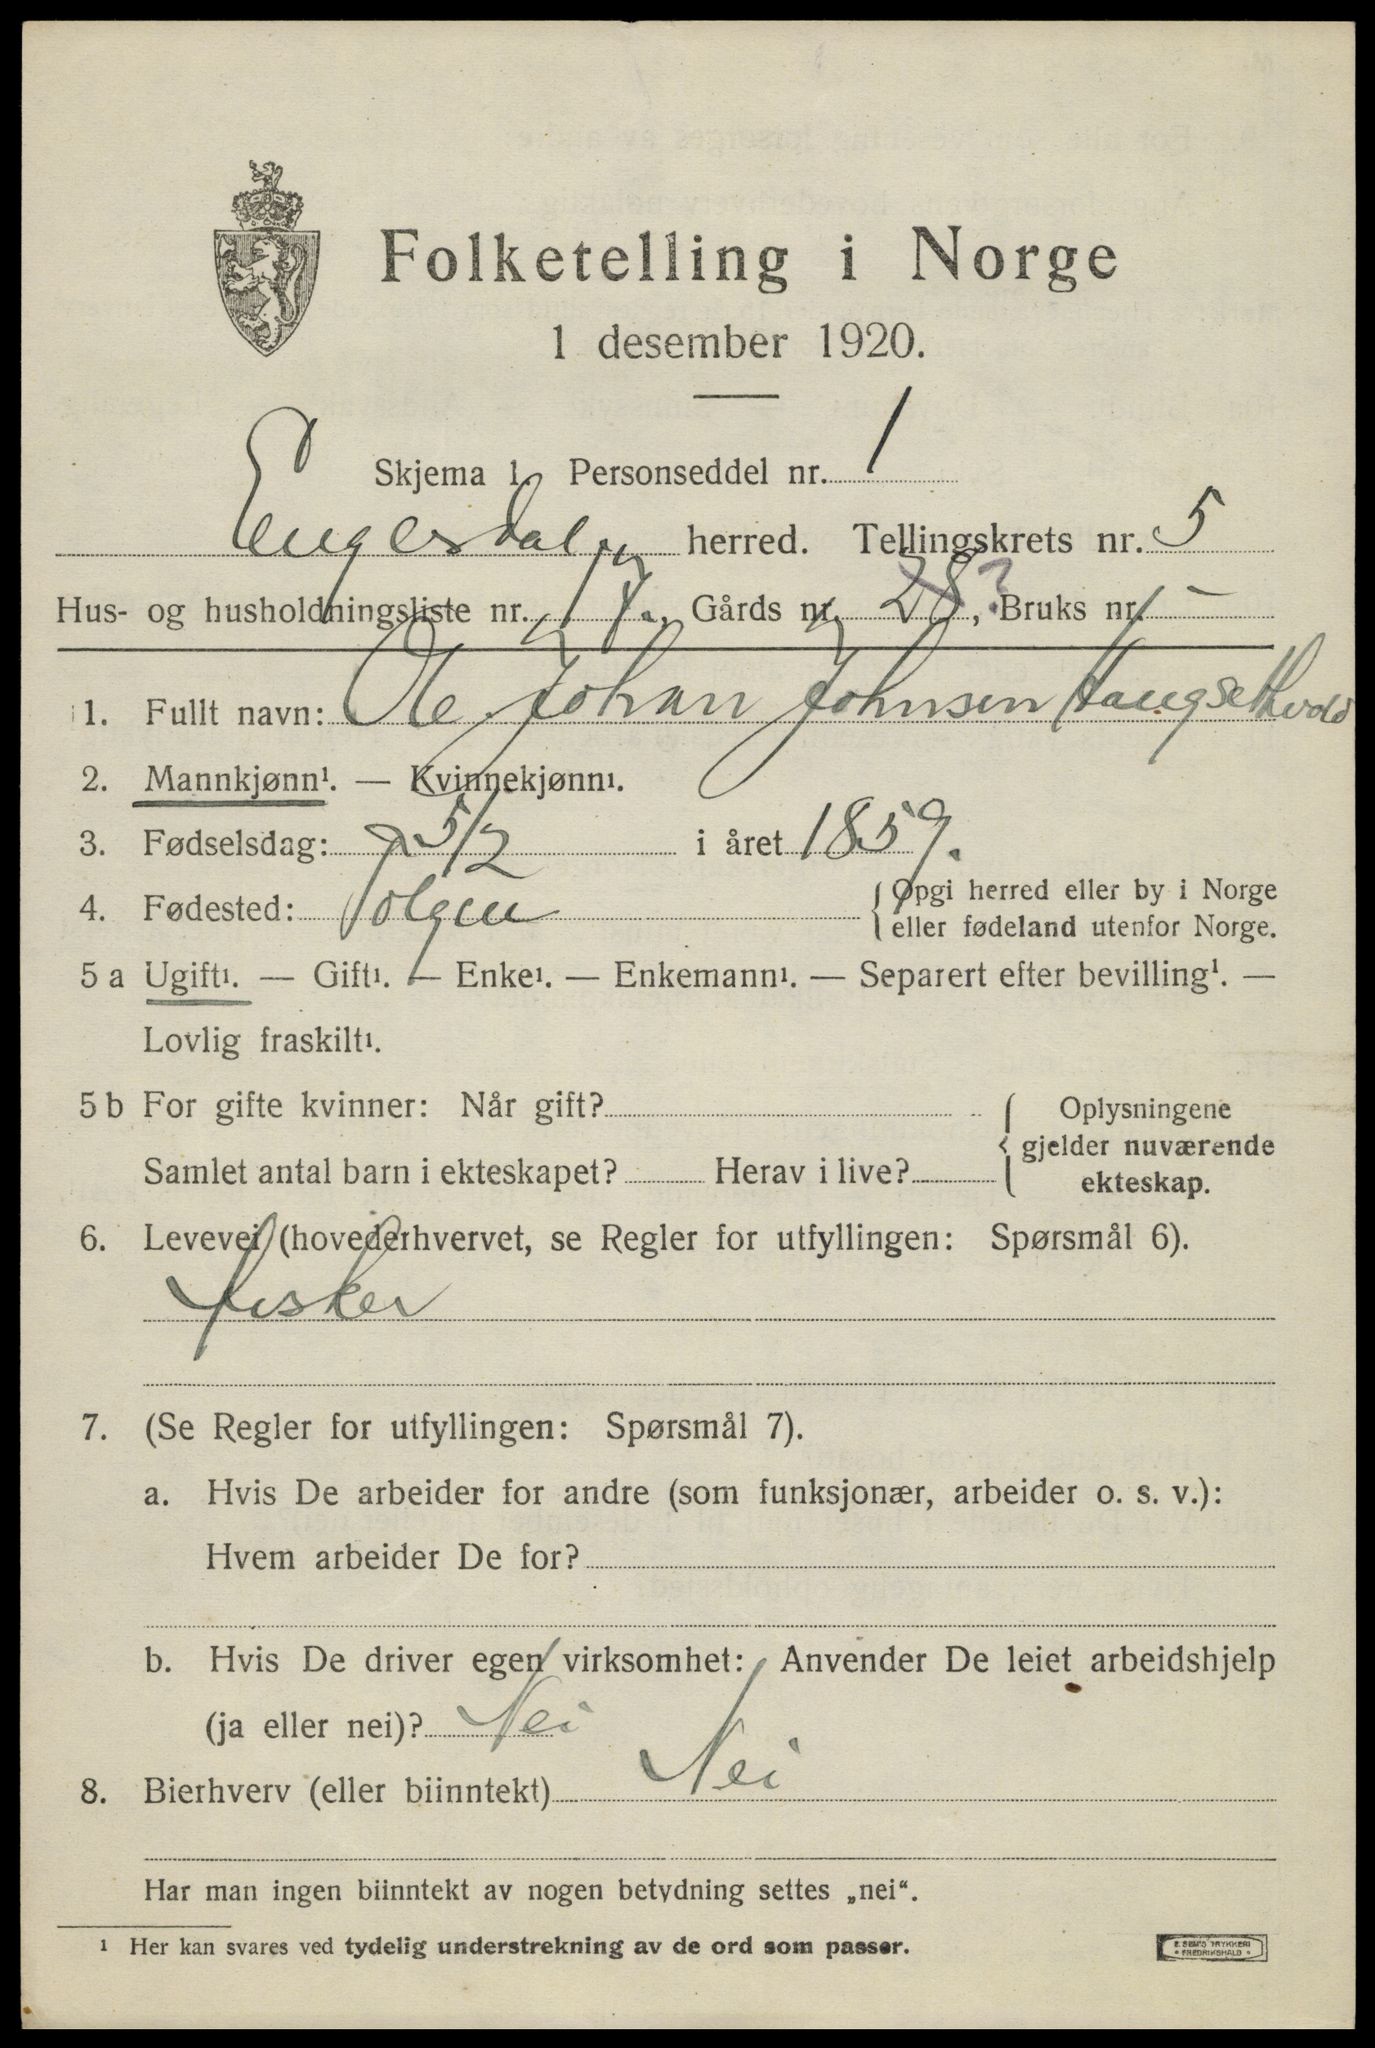 Folketelling i Norge
1 desember 1920.
Skjema 1. Personseddel nr. 1
Engerdal herred. Tellingskrets nr. 5
Hus- og husholdningsliste nr. 17., Gårds nr. 28?, Bruks nr. -
1. Fullt navn: Ole Johan Johnsen Haugsethvold
2. Mannkjønn¹. — Kvinnekjønn¹.
3. Fødselsdag: 5/2 i året 1859.
4. Fødested: Tolgen {Opgi herred eller by i Norge
eller fødeland utenfor Norge.
5 a Ugift¹. — Gift¹. — Enke¹. — Enkemann¹. — Separert efter bevilling¹. —
Lovlig fraskilt¹.
5 b For gifte kvinner: Når gift?
Samlet antal barn i ekteskapet? Herav i live?
{Oplysningene
gjelder nuværende
ekteskap.
6. Levevei (hovederhvervet, se Regler for utfyllingen: Spørsmål 6).
Fisker
7. (Se Regler for utfyllingen: Spørsmål 7).
a. Hvis De arbeider for andre (som funksjonær, arbeider o. s. v.):
Hvem arbeider De for?
b. Hvis De driver egen virksomhet: Anvender De leiet arbeidshjelp
(ja eller nei)? Nei
8. Bierhverv (eller biinntekt) Nei
Har man ingen biinntekt av nogen betydning settes „nei“.
¹ Her kan svares ved tydelig understrekning av de ord som passer.
E. SEM'S TRYKKERI
• FREDRIKSHALD •